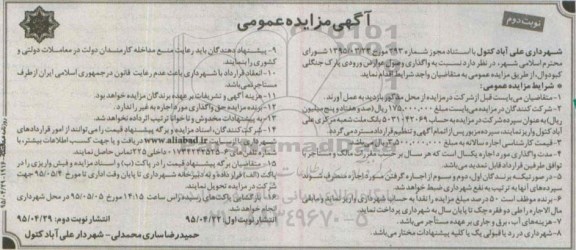 نوبت دوم
آگهی مزایده عمومی
شهرداری علی آباد کتول با استناد مجوز شماره ۲۹۳ مورخ ۱۳۹۵/۰۳/۲۳ شورای
محترم اسلامی شهر، در نظر دارد نسبت به واگذاری وصول عوارض ورودی پارک جنگلی
کبودوال، از طریق مزایده عمومی به متقاضیان واجد شرایط اقدام نماید.
شرایط مزایده عمومی:
۱- متقاضیان می‌بایست قبل از شرکت در مزایده از محل مذکور بازدید به عمل آورند.
۲- شرکت کنندگان در مزایده می‌بایست مبلغ ۱۷۵,۰۰۰,۰۰۰ ریال (صد و هفتاد و پنج میلیون
ریال) به عنوان سپرده شرکت در مزایده به حساب ۵۰۳۱۰۴۲۰۶۹ بانک ملت شعبه مرکزی علی
آباد کتول واریز نمایند، سپرده مزبور پس از اتمام آگهی و تنظیم قرارداد مسترد می‌گردد.
۳- قیمت کارشناسی اجاره سالانه به مبلغ
۴- مدت واگذاری مورد اجاره یکسال است که هر سال بر حسب مقررات مالک و مستأجر با
توافق طرفین قرارداد قابل تمدید می‌باشد.
۵- در صورتیکه برندگان اول، دوم و سوم از اجاره گرفتن مورد اجاره منصرف شوند،
سپرده‌های آنها به ترتیب به نفع شهرداری ضبط خواهد شد.
۶- برنده موظف است ۵۰ درصد مبلغ مزایده را نقداً به حساب شهرداری واریز نماید و مابقی
مال الاجاره را طی دو فقره چک تا پایان سال به شهرداری پرداخت نماید.
۷- هزینه‌های آب، برق و جاری بر عهده مستأجر می‌باشد.
۸- شهرداری در رد یا قبولی یک یا کلیه پیشنهادات مختار می‌باشد.
۹- پیشنهاد دهندگان باید رعایت منع مداخله کارمندان دولت در معاملات دولتی و
کشوری را بنمایند.
۱۰- انعقاد قرارداد با شهرداری باعث عدم رعایت قانون در جمهوری اسلامی ایران از طرف
مستأجر نمی‌باشد.
۱۱- هزینه آگهی و تشریفات بر عهده برندگان مزایده خواهد بود.
۱۲- برنده مزایده حق واگذاری مورد اجاره به غیر را ندارد.
۱۳- به پیشنهادات مخدوش و ناخوانا ترتیب اثر داده نخواهد شد.
۱۴- شرکت کنندگان، اسناد مزایده و برگه پیشنهاد قیمت را می‌توانند از امور قراردادهای
www.aliabad.ir دریافت و یا جهت کسب اطلاعات بیشتر، با
داخلی ۲۵ تماس حاصل نمایند.
۱۵- متقاضیان برگه پیشنهاد قیمت را در پاکت (ب) و اسناد مزایده و فیش واریزی را در
پاکت (الف) قرار داده و به دبیرخانه شهرداری تا پایان وقت اداری تا مورخ ۹۵/۰۵/۰۴ جهت
شرکت در مزایده تحویل نمایند.
پاکت‌های رسیده رأس ساعت ۱۴:۱۵ مورخ ۹۵/۰۵/۰۵ در محل شهرداری
انجام خواهد شد.
انتشار نوبت اول: ۹۵/۰۴/۲۱ انتشار نوبت دوم: ۹۵/۰۴/۲۹
حمیدرضا ساری محمدلی - شهردار علی آباد کتول